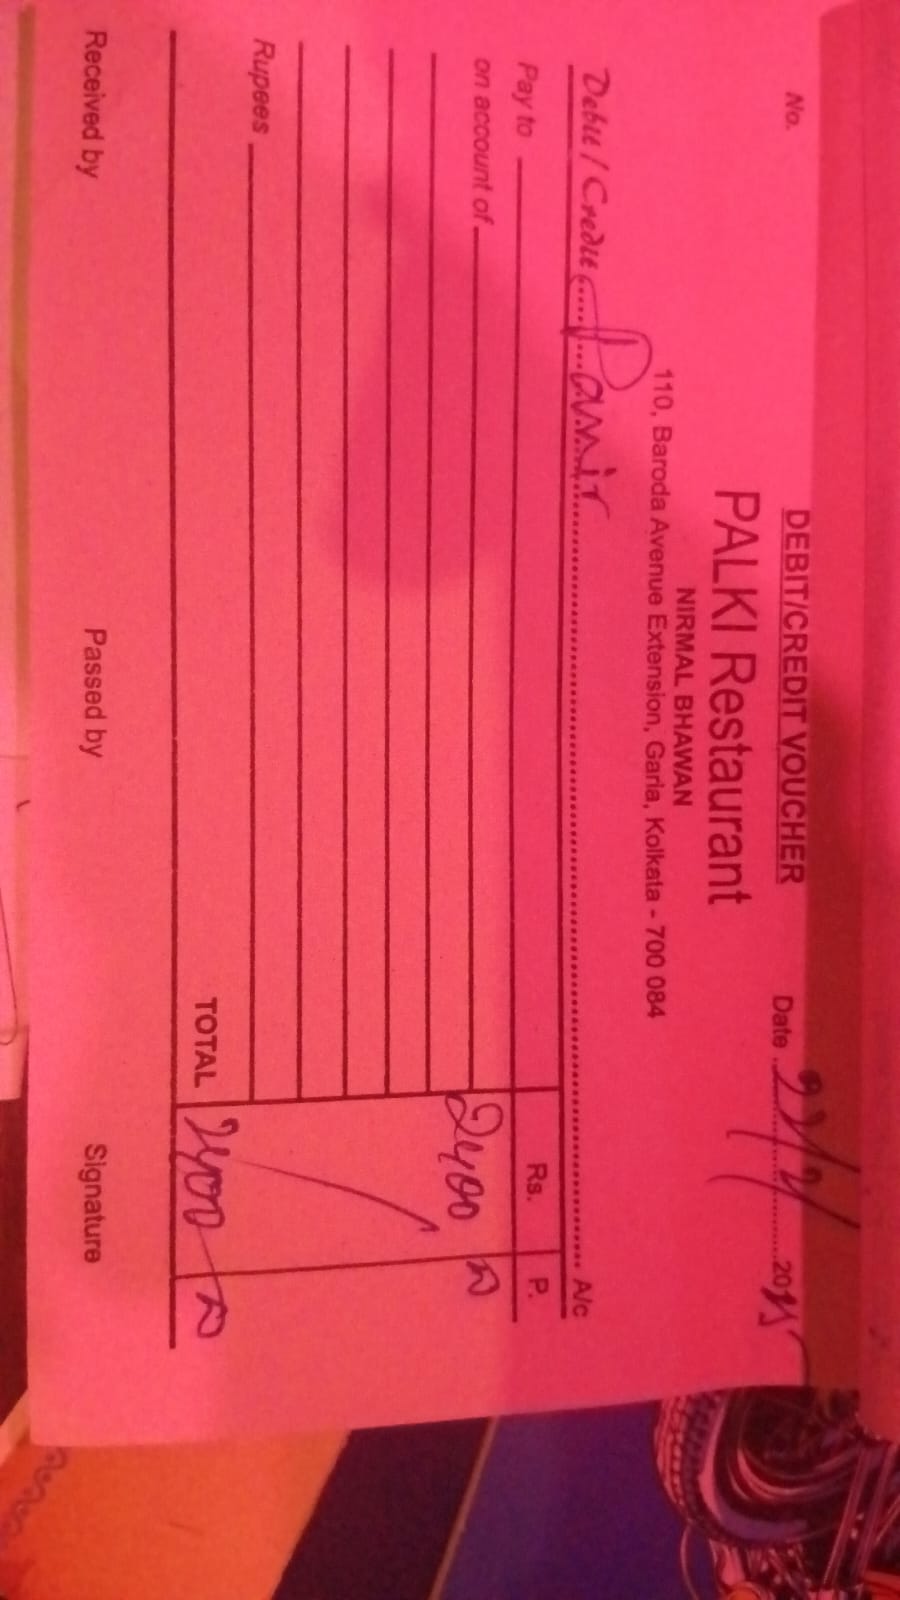 DEBIT/CREDIT VOUCHER
No. Date 2015
PALKI Restaurant
NIRMAL BHAWAN
110, Baroda Avenue Extension, Garia, Kolkata - 700 084
Debit / Credit A/c
Pay to Rs. P.
on account of 2400
Rupees
TOTAL 2400
Received by Passed by Signature